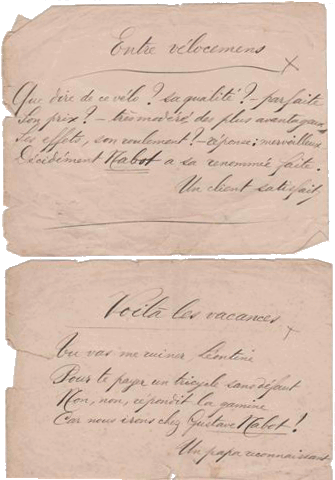 Entre vélocemens
Que dire de ce vélo ? sa qualité ? - parfaite
Son prix ? - très modéré des plus avantageux
Ses effets, son roulement ? - réponse : merveilleux
Décidément Nabot a sa renommée faite.
Un client satisfait
Voilà les vacances
Tu vas me ruiner Léontine
Pour te payer un tricycle sans défaut
Non, non, répondit la gamine
Car nous irons chez Gustave Nabot !
Un papa reconnaissant